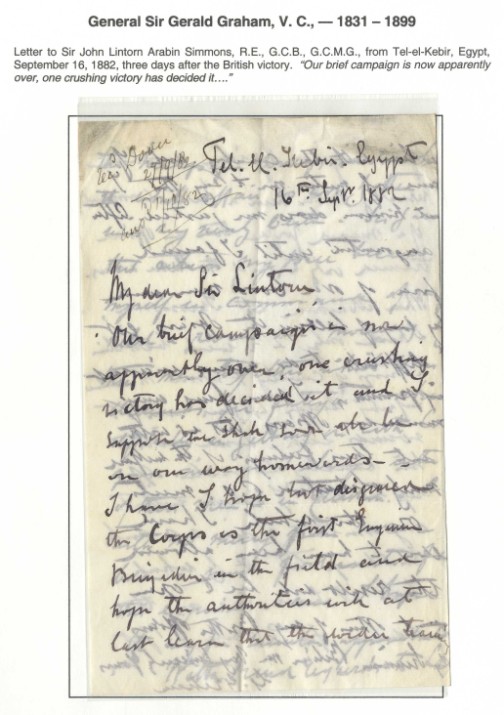 General Sir Gerald Graham, V. C., — 1831 – 1899
Letter to Sir John Lintorn Arabin Simmons, R.E., G.C.B., G.C.M.G., from Tel-el-Kebir, Egypt,
September 16, 1882, three days after the British victory. “Our brief campaign is now apparently
over, one crushing victory has decided it....”
Tel. el. Kebir. Egypt
16th Septr. 1882
My dear Sir Lintorn
Our brief campaign is now
apparently over, one crushing
victory has decided it and I
suppose we shall soon all be
on our way homewards –
I have I hope not disgraced
the Corps as the first Engineer
Brigadier in the field and
hope the authorities will at
last learn that the wider